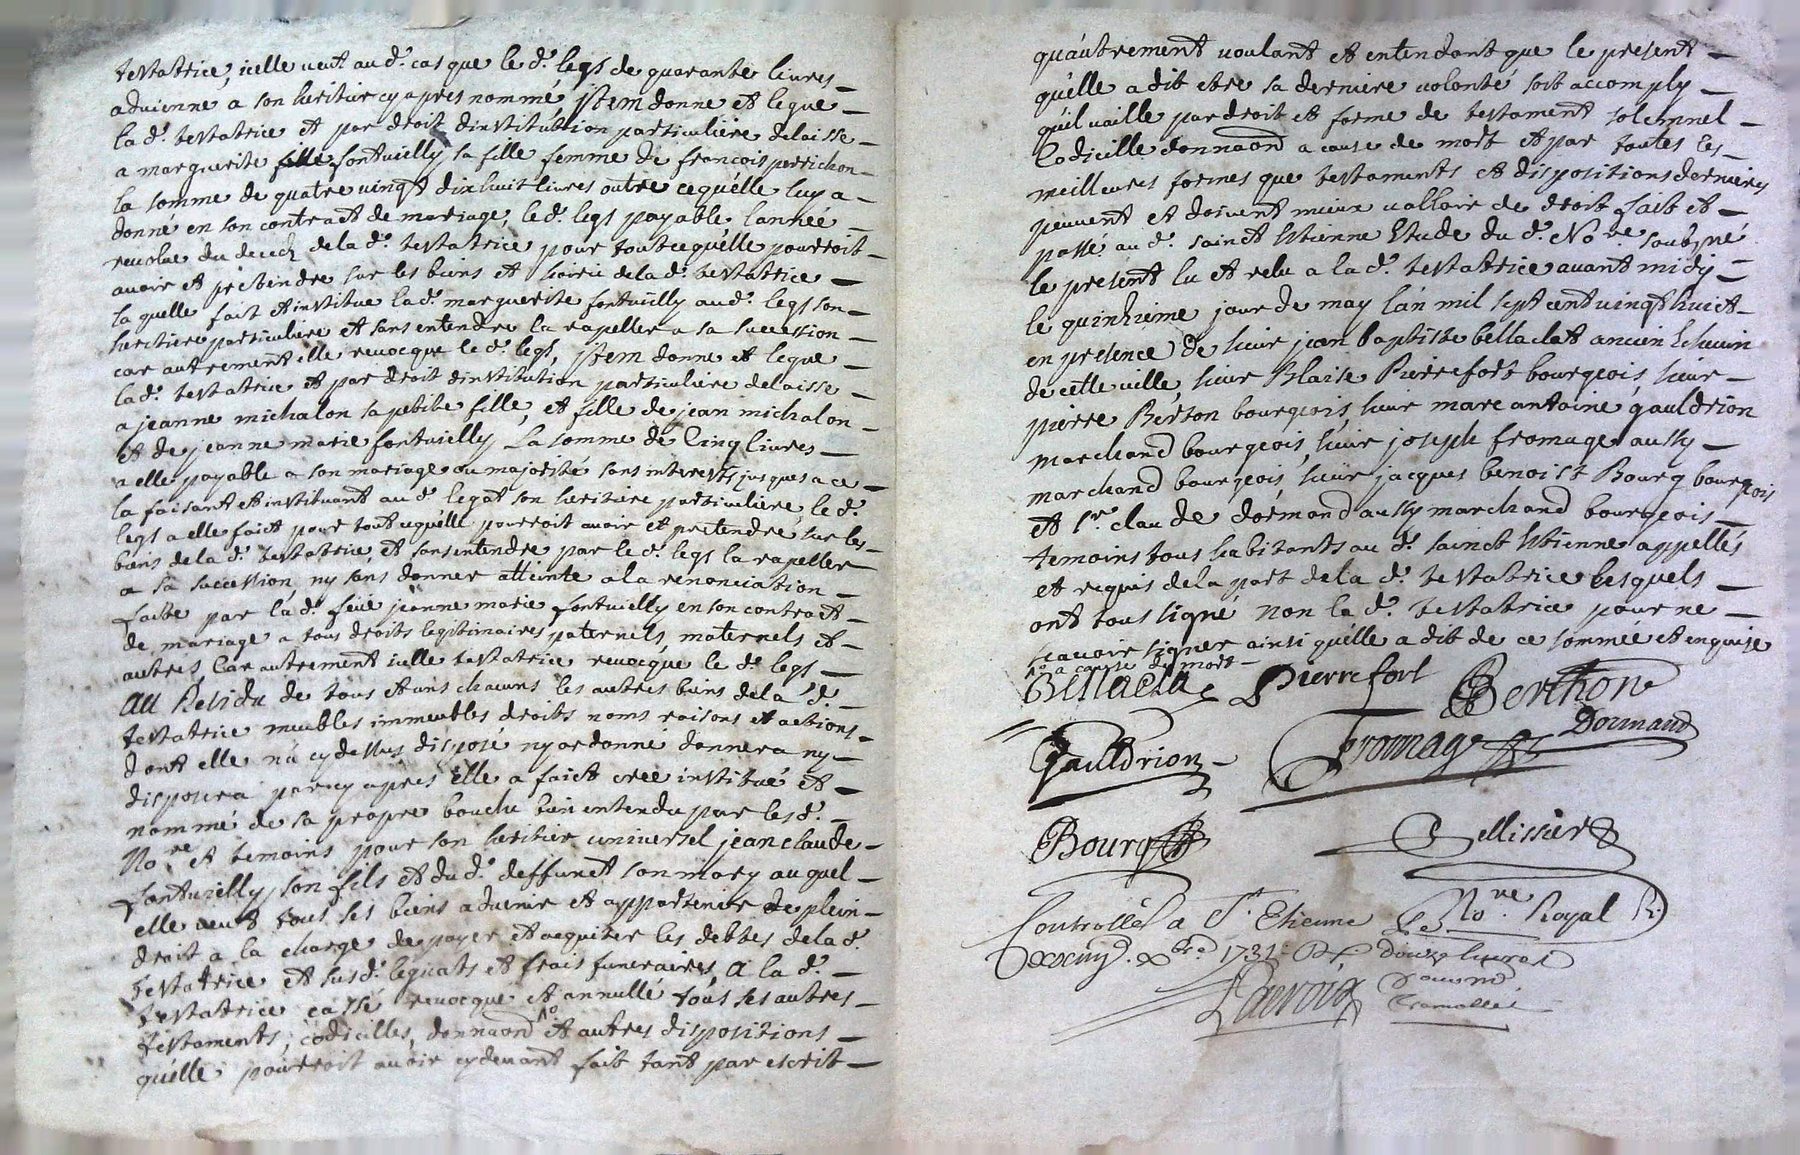 testatrice, icelle veut au d. cas que le d. legs de quarante livres
advienne a son heritier cy apres nommé, Jtem donne et legue
la d. testatrice et par droit dinstitution particuliere delaisse
a marguerite fontvieilly sa fille femme de francois perrichon
la somme de quatre vingt dixhuit livres outre cequ'elle luy a
donné en son contract de mariage, le d. legs payable lannée
revolue du decedz de la d. testatrice pour tout cequ'elle pourroit
avoir et prétendre sur les biens et hoirie de la d. testatrice
la quelle fait et institue la d. marguerite fontvieilly au d. legs son
heritiere particuliere et sans entendre la rapeller a sa succession
car autrement elle revocque le d. legs, Jtem donne et legue
la d. testatrice et par droit dinstitution particuliere delaisse
a jeanne michalon sa petite fille, et fille de jean michalon
et de jeanne marie fontvieilly La somme de Cinq livres
a elle payable a son mariage ou majorité sans interests jusques a ce
la faisant et instituant au d. legat son heritiere particuliere, le d.
legs a elle faict pour tout cequ'elle pourroit avoir et pretendre sur les
biens de la d. testatrice, et sans entendre par le d. legs la rapeller
a sa succession, ny sans donner atteinte a la renonciation
faite par la d. feüe jeanne marie fontvieilly en son contract
de mariage a tous droits legitimaires paternels, maternels et
autres, Car autrement icelle testatrice revocque le d. legs
Au Residu de tous et uns chacuns les autres biens de la d.
testatrice meubles immeubles droits noms raisons et actions
dont elle n'a cy dessus disposé ny ordonné donnera ny
disposera par cy apres Elle a faict creé institué et
nommé de sa propre bouche bien entendu par les d.
No.re et temoins pour son heritier universel jean claude
fontvieilly, son fils et du d. deffunct son mary auquel
elle veut tous ses biens advenir et appartenir de plein
droit a la charge de payer et acquiter les debtes de la d.
testatrice et susd. legats et frais funeraires, a la d.
testatrice cassé revocque et annullé tous ses autres
testaments, codicilles, donnaõns et autres dispositions
quelle pourroit avoir cy devant fait tant par escrit
qu'autrement voulant et entendant que le present
qu'elle a dit etre sa derniere volonté soit accomply
qu'il vaille par droit et forme de testament solemnel
Codicille donnaõn a cause de mort et par toutes les
meilleures formes que testaments et dispositions dernieres
peuvent et doivent mieux valloir de droit fait et
passé au d. sainct Estienne Etude du d. No.re soubz.né
le present lu et relu a la d. testatrice avant midy
le quinzieme jour de may l'an mil sept cent vingt huict
en presence de sieur jean baptiste bellaclat ancien Echevin
de cette ville, sieur Blaise Pierrefort bourgeois, sieur
pierre Berton bourgeois, sieur marc antoine gauldrion
marchand bourgeois, sieur joseph fromage aussy
marchand bourgeois, sieur jacques benoist Bourg bourgeois
et s.r claude dormand aussy marchand bourgeois
temoins tous habitants au d. sainct Estienne appellés
et requis de la part de la d. testatrice lesquels
ont tous signé non la d. testatrice pour ne
scavoir signer ainsi qu'elle a dit de ce sommée et enquise
a cause de mort
Bellacla
Pierrefort
Berthon
Gauldrion
Fromage
Dormand
Bourg
Pellissier
No.re Royal
Controllé a S.t Etienne le
1731. douze livres
Lacroix